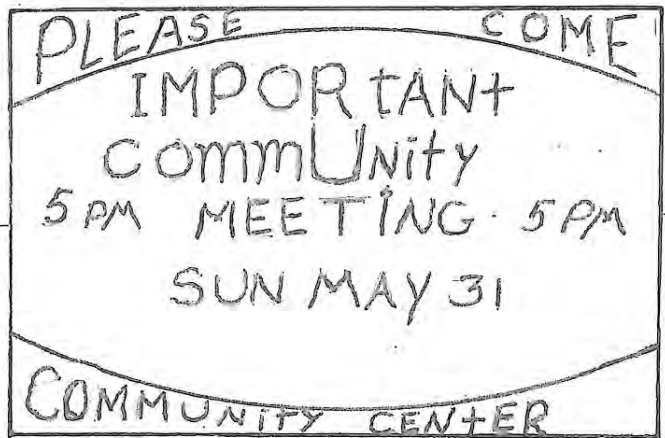 PLEASE COME
IMPORtANt
commUNity
5 PM MEETING 5 PM
SUN MAY 31
COMMUNITY CENtER